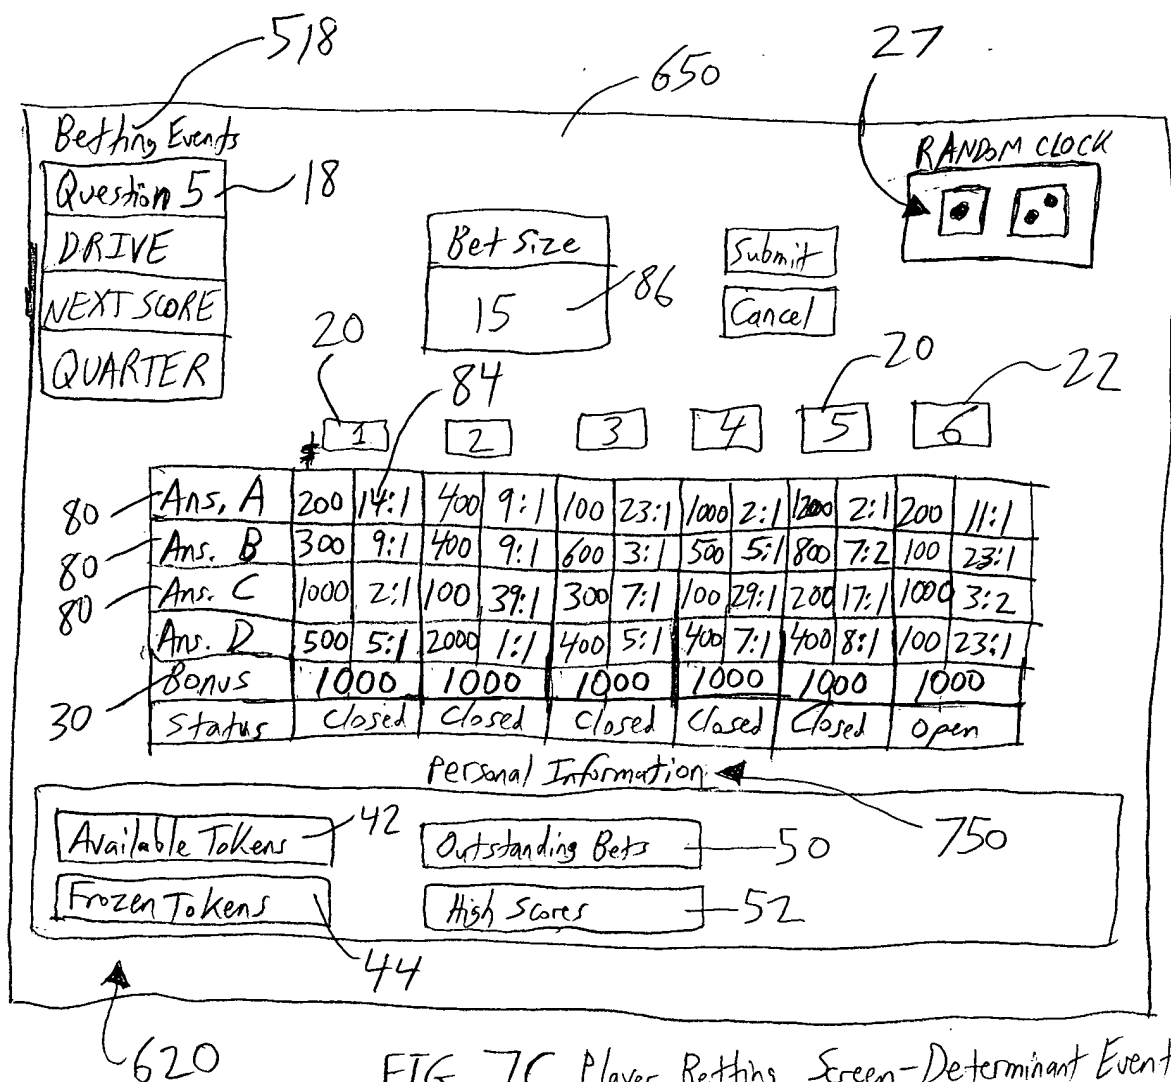 518
27
650
Betting Events
RANDOM CLOCK
Question 5
18
DRIVE
Bet Size
Submit
NEXT SCORE
15
86
Cancel
QUARTER
20
84
20
22
$
1 2 3 4 5 6
80 Ans, A 200 14:1 400 9:1 100 23:1 1000 2:1 1200 2:1 200 11:1
80 Ans. B 300 9:1 400 9:1 600 3:1 500 5:1 800 7:2 100 23:1
80 Ans. C 1000 2:1 100 39:1 300 7:1 100 29:1 200 17:1 1000 3:2
Ans. D 500 5:1 2000 1:1 400 5:1 400 7:1 400 8:1 100 23:1
30 Bonus 1000 1000 1000 1000 1000 1000
Status Closed Closed Closed Closed Closed Open
Personal Information
750
Available Tokens 42 Outstanding Bets 50
Frozen Tokens 44 High Scores 52
620
FIG 7C Player Betting Screen-Determinant Event